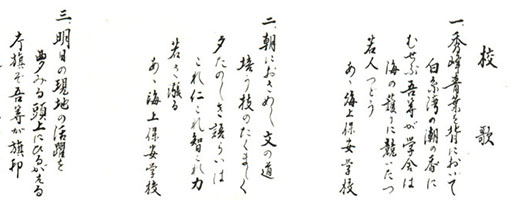 校歌
一、秀峰青葉を背において
白糸湾の潮の香に
むせぶ吾等が学舎は
海の護りに競いたつ
若人つどう
あゝ海上保安学校
二、朝におさめし文の道
培う技のたくましく
夕たのしき語らいは
これ仁これ智これ力
若さ漲る
あゝ海上保安学校
三、明日の現地の活躍を
夢みる頭上にひるがえる
考旗ぞ吾等が旗印